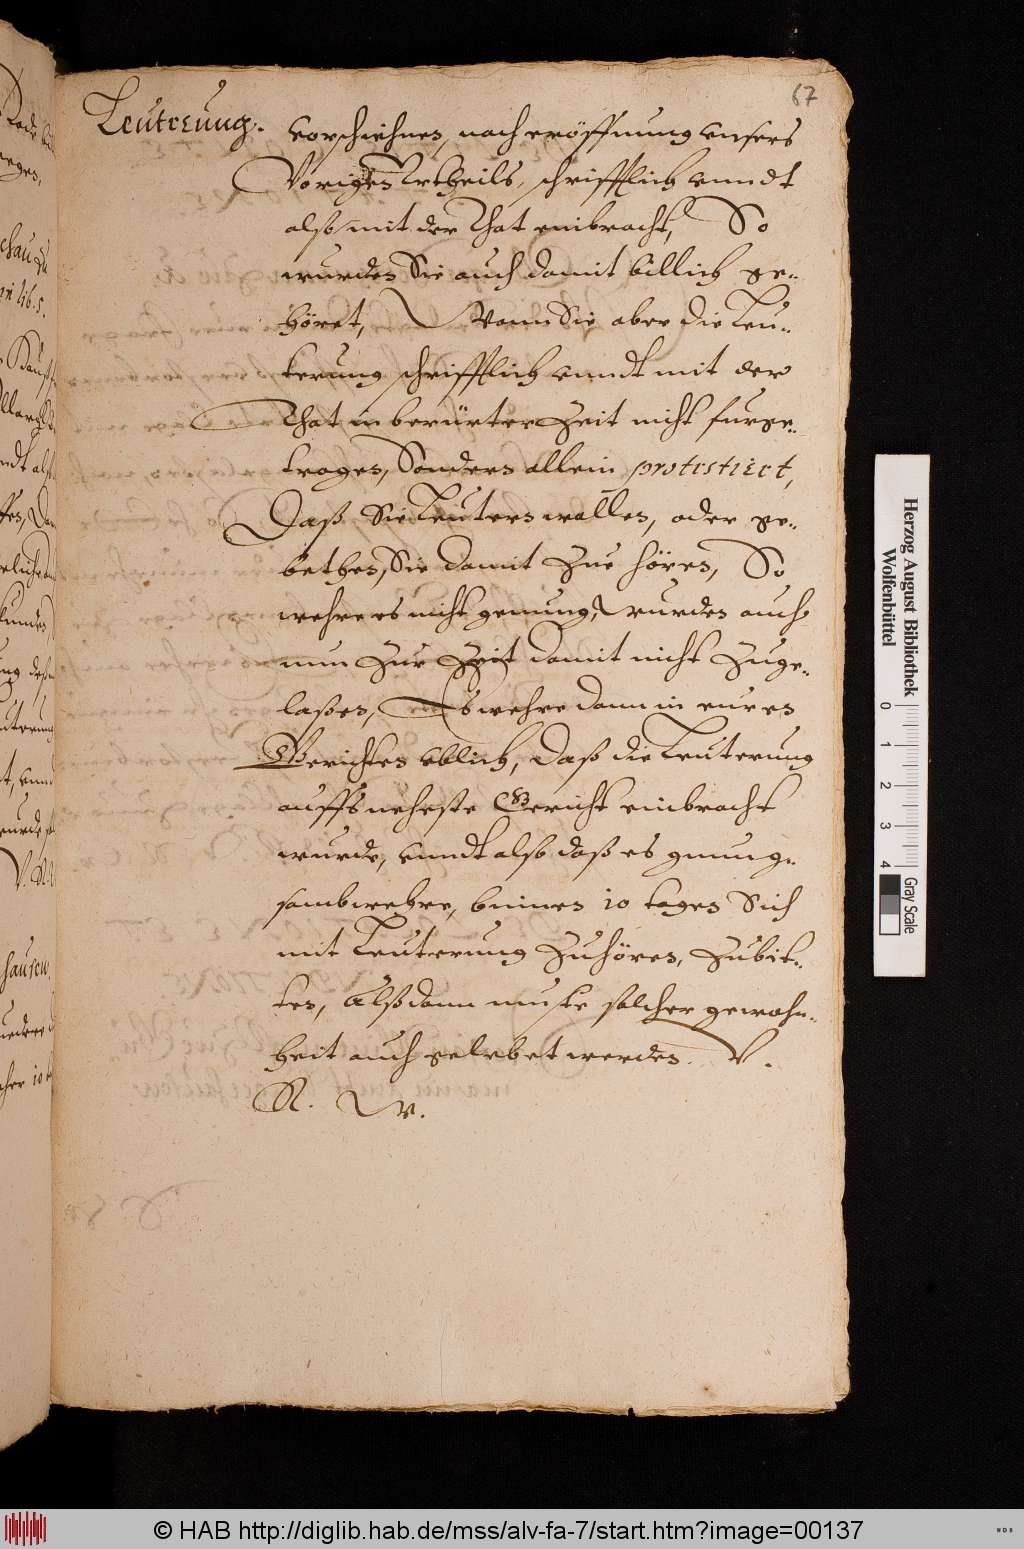 67
Leuterung.
vorschienen, nach eröffnung unsers
Vorigen Urtheils, schrifftlich unndt
also mit der That einbracht, So
wurden Sie auch damit billich ge-
höret, Wann Sie aber die Leu-
terung schrifftlich unndt mit der
That in berürter Zeit nicht furge-
tragen, Sondern allein protestiert,
Daß Sie Leutern wollen, oder ge-
bethen, Sie damit Zue hören, So
wehre es nicht genung, wurden auch
nun Zur Zeit damit nicht Zuge-
laßen, Es wehre dann in euren
Gerichten ublich, daß die Leuterung
auffs neheste Gericht einbracht
wurde, unndt also daß es gnung-
samb wehre, binnen 10 tagen Sich
mit Leuterung Zuhören, Zubit-
ten, Alßdann muste solcher gewohn-
heit auch gelebet werden. V.
R. W.
Herzog August Bibliothek
Wolfenbüttel
0 1 2 3 4
Gray Scale
© HAB http://diglib.hab.de/mss/alv-fa-7/start.htm?image=00137